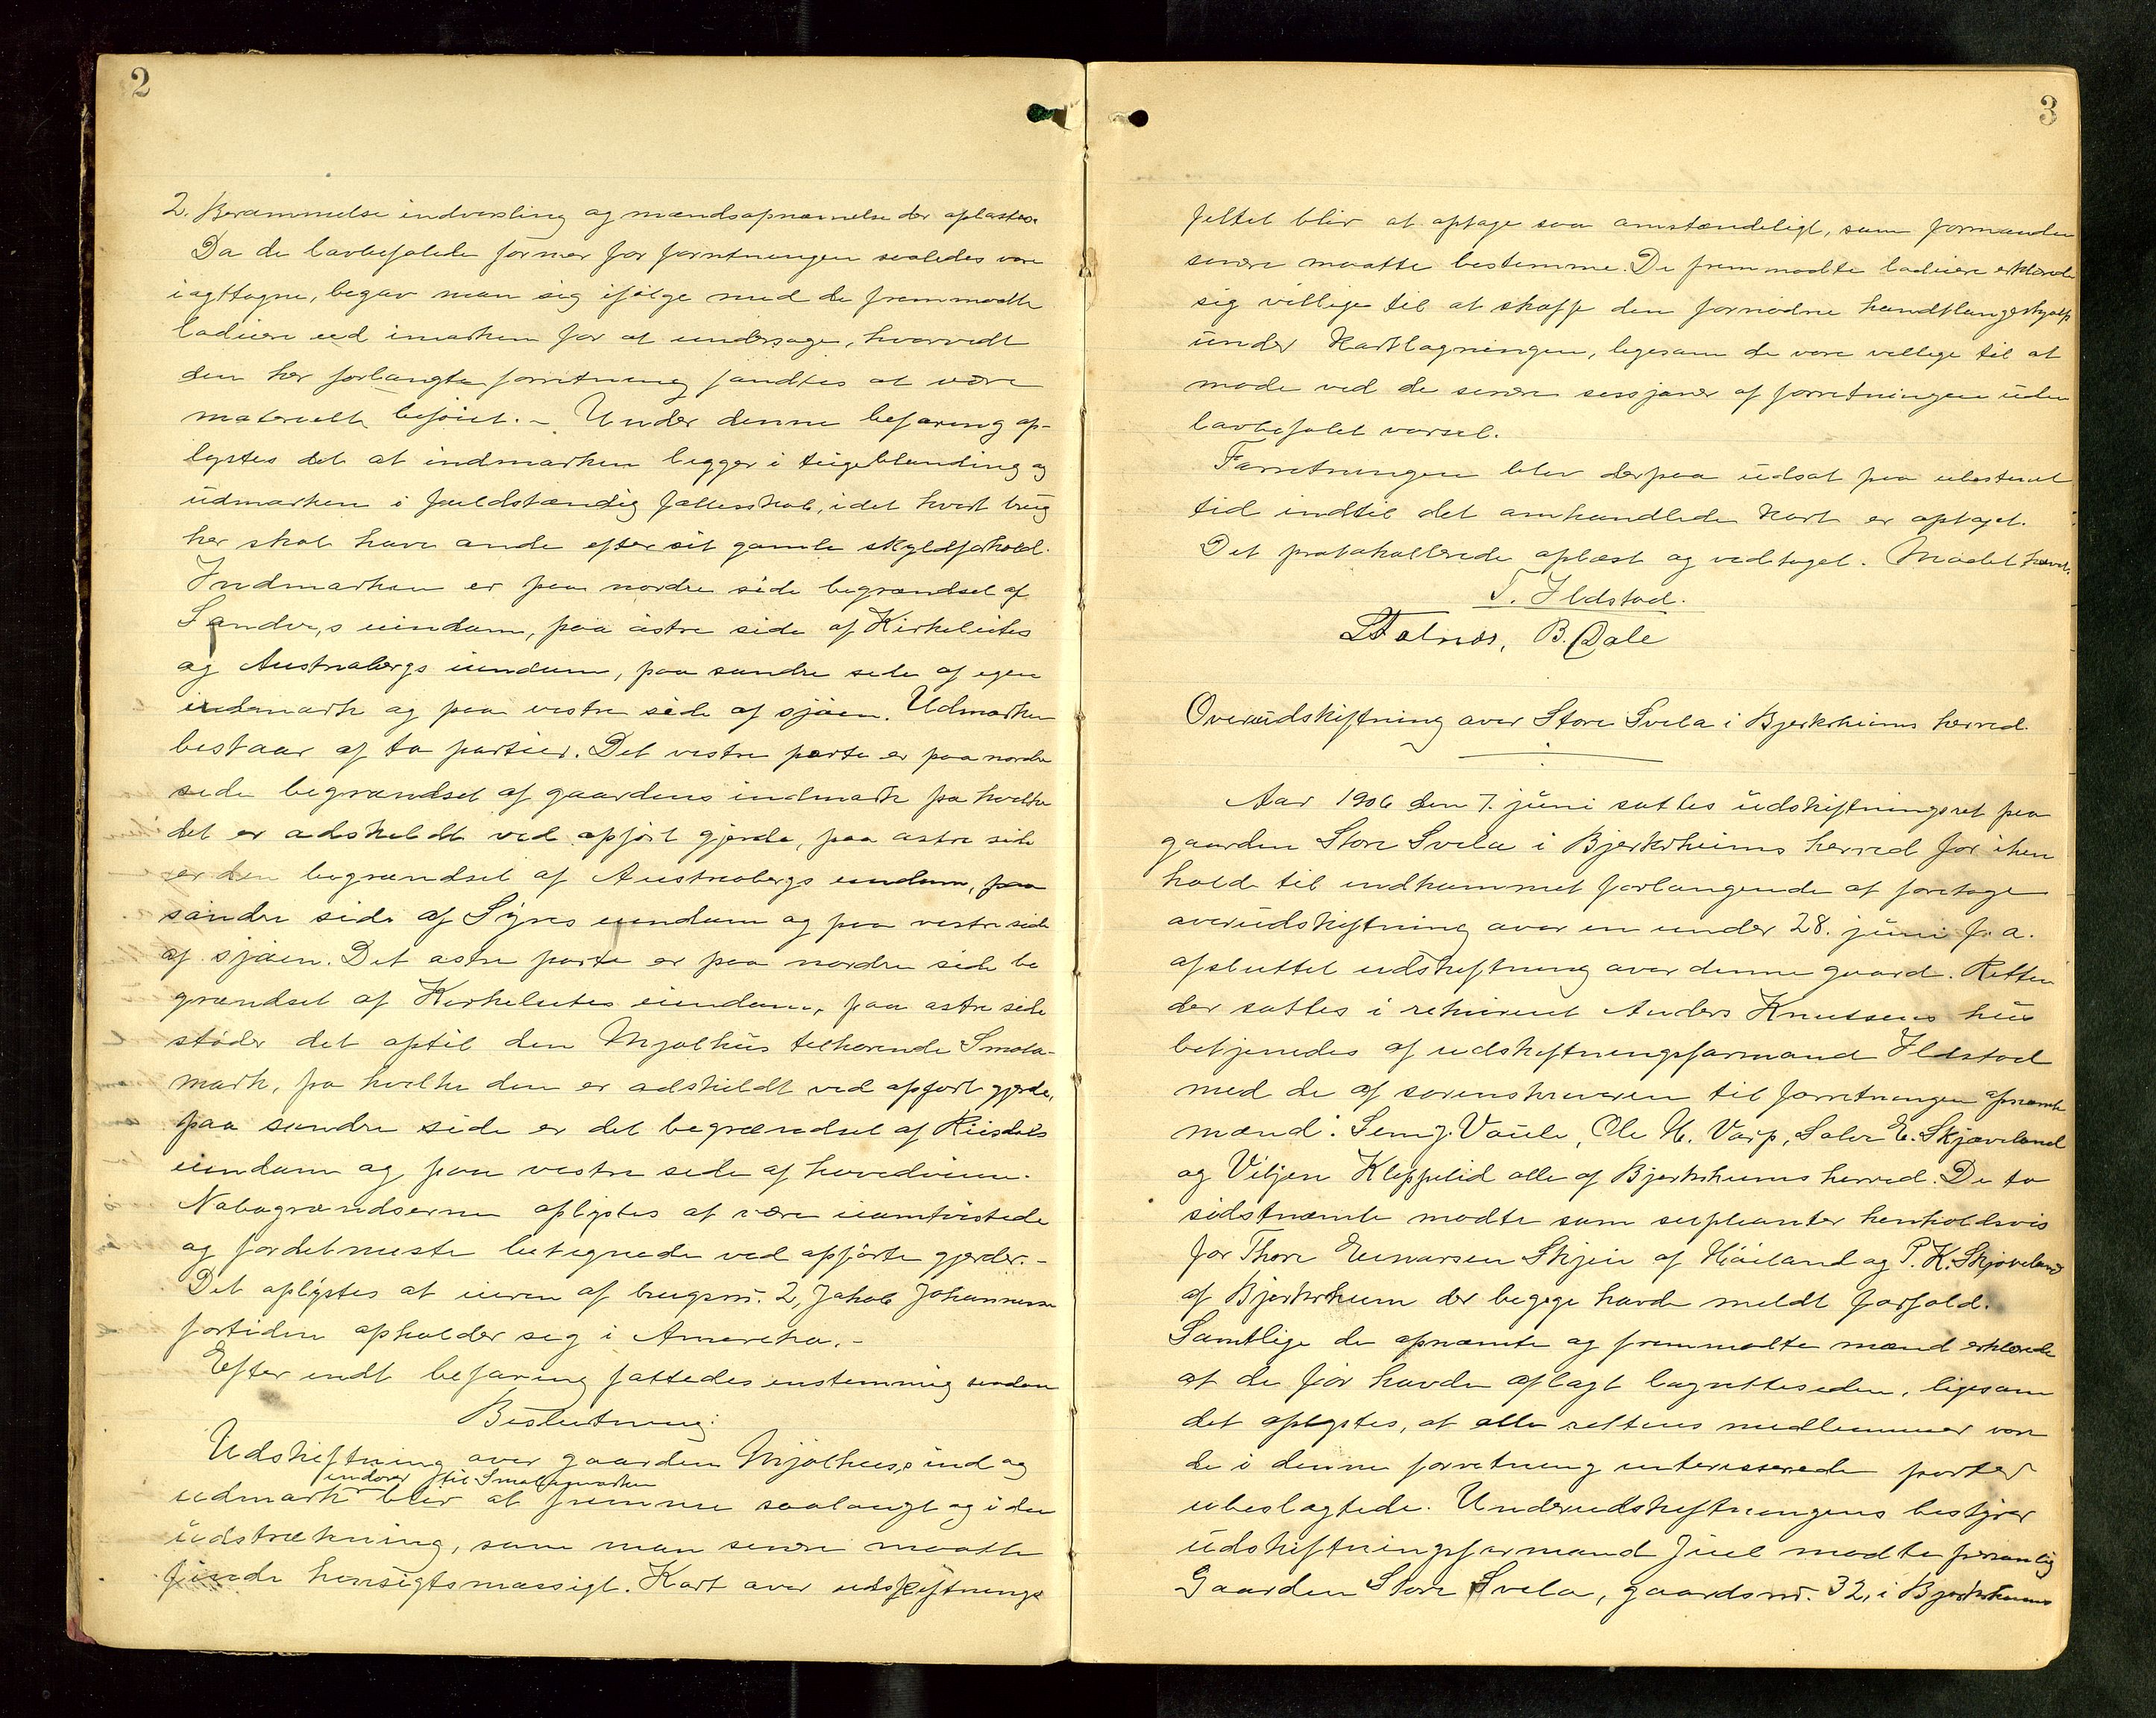 2
2. Berammelse indvarsling og mændsopnævnelse der oplæstes.
Da de lovbefalede former for forretningen saaledes vare
iagttagne, begav man sig ifølge med de fremmødte
lodeiere ud i marken for at undersøge, hvorvidt
den her forlangte forretning fandtes at være
materielt beføiet. – Under denne befaring op-
lystes det at indmarken ligger i teigeblanding og
udmarken i fuldstændig fællesskab, idet hvert brug
her skal have andel efter sit gamle skyldforhold.
Indmarken er paa nordre side begrændset af
Sande,s eiendom, paa østre side af Kirkeleites
og Austrabergs eiendom, paa søndre side af egen
udmark og paa vestre side af sjøen. Udmarken
bestaar af to partier. Det vestre parti er paa nordre
side begrændset af gaardens indmark fra hvilken
det er adskildt ved opført gjerde, paa østre side
er den begrændset af Austrabergs eiendom, paa
søndre side af Syres eiendom og paa vestre side
af sjøen. Det østre parti er paa nordre side be
grændset af Kirkeleites eiendom, paa østre side
støder det optil den Mjølhus tilhørende Smala-
mark, fra hvilken den er adskildt ved opført gjerde,
paa søndre side er det begrændset af Riisdals
eiendom og paa vestre side af hovedveien.
Nabogrændserne oplystes at være uomtvistede
og fordetmeste betegnede ved opførte gjerder. –
Det oplystes at eieren af brugsnr. 2, Jakob Johannessen
fortiden opholder sig i Amerika. –
Efter endt befaring fattedes enstemmig saadan
Beslutning:
Udskiftning over gaarden Mjølhus,s ind og
undtagen til Smalamarken
udmark blir at fremme saalangt og i den
udstrækning, som man senere maatte
finde hensigtsmæssigt. Kart over udskiftnings
3
feltet blir at optage saa omstændeligt, som formanden
senere maatte bestemme. De fremmødte lodeiere erklærede
sig villige til at skaffe den fornødne handtlangerhjælp
under Kartlægningen, ligesom de vare villige til at
møde ved de senere sessjoner af forretningen uden
lovbefalet varsel.
Forretningen blev derpaa udsat paa ubestemt
tid indtil det omhandlede kart er optaget.
Det protokollerede oplæst og vedtaget. Mødet hævet.
T. Ildstad.
Falnes, B. Dale
Overudskiftning over Store Svela i Bjerkreims herred.
Aar 1906 den 7. juni sattes udskiftningsret paa
gaarden Store Svela i Bjerkreims herred for ihen
hold til indkommet forlangende at foretage
overudskiftning over en under 28. juni f. a.
afsluttet udskiftning over denne gaard. Retten
der sattes i rekvirent Anders Knutsens hus
betjenedes af udskiftningsformand Ildstad
med de af sorenskriveren til forretningen opnævnte
mænd: Sem J. Vaule, Ole N. Varp, Salve E. Skjæveland
og Viljen Kleppelid alle af Bjerkreims herred. De to
sidstnævnte mødte som supleanter henholdsvis
for Thore Einarsen Skjeie af Høiland og P. K. Skjæveland
af Bjerkreim der begge havde meldt forfald.
Samtlige de opnævnte og fremmødte mænd erklærede
at de før havde aflagt lagretteseden, ligesom
det oplystes, at alle rettens medlemmer vare
de i denne forretning interesserede parter
ubeslægtede. Underudskiftningens bestyrer
udskiftningsformand Juel mødte personlig
Gaarden Store Svela, gaardsnr. 32, i Bjerkreims